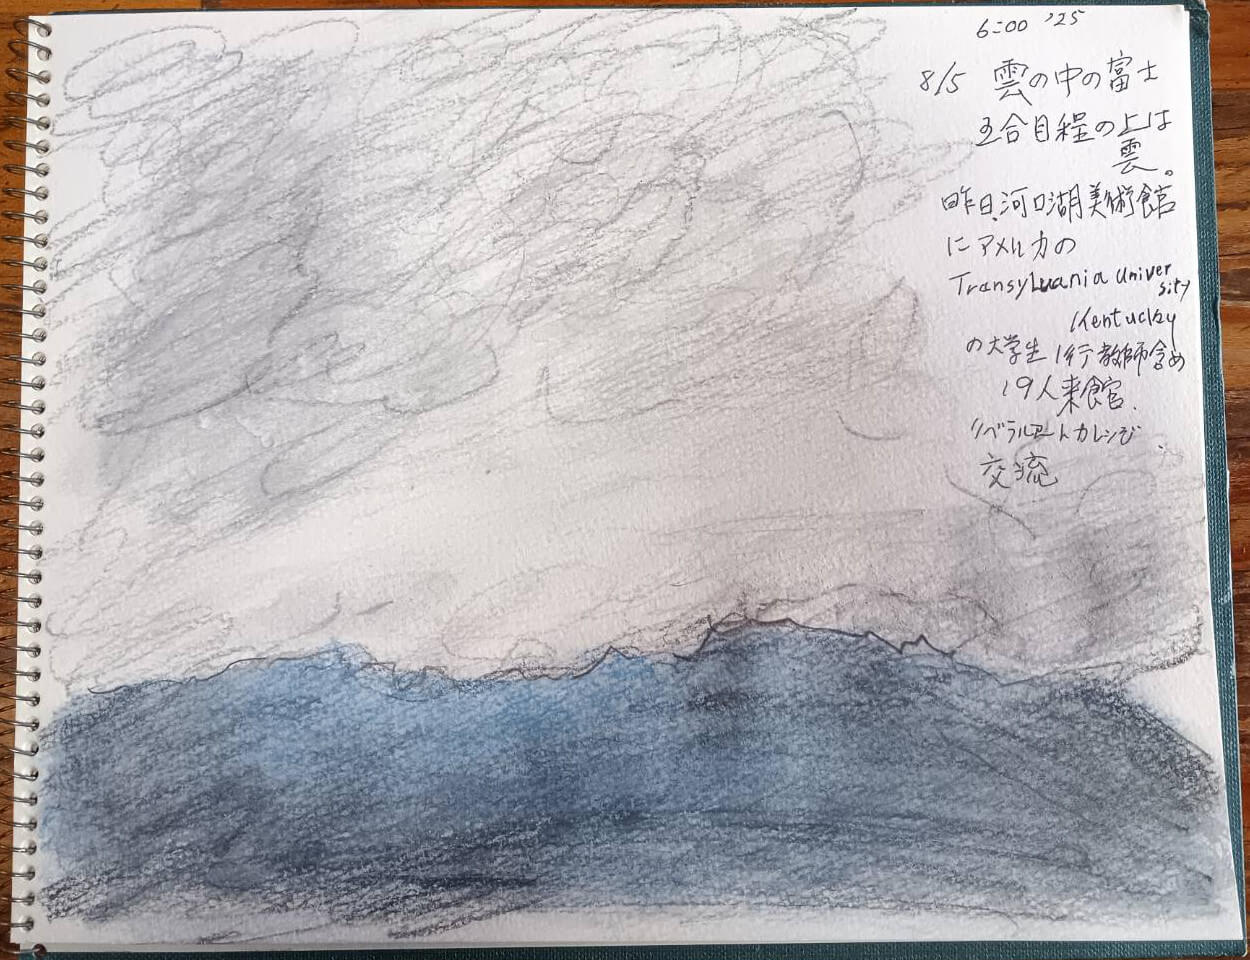 6:00 '25
8/5 雲の中の富士
五合目程の上は
雲。
昨日、河口湖美術館
にアメルカの
Transylvania Univer
sity
Kentucky
の大学生1行教師含め
19人来館.
リベラルアートカレンジ
交流